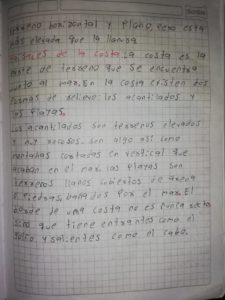 terreno horizontal y plano, pero esta
mas elevada que la llanura
de la costa. La costa es la
parte de terreno que se encuentra
junto al mar. En la costa existen dos
formas de relieve: los acantilados y
las playas.
Los acantilados son terrenos elevados
y muy rocosos. son algo asi como
montañas cortadas en vertical que
acaban en el mar. las playas son
terrenos llanos cubiertos de arena
o piedras, bañados por el mar. El
borde de una costa no es nunca recto
sino que tiene entrantes como el
golfo, y salientes como el cabo.